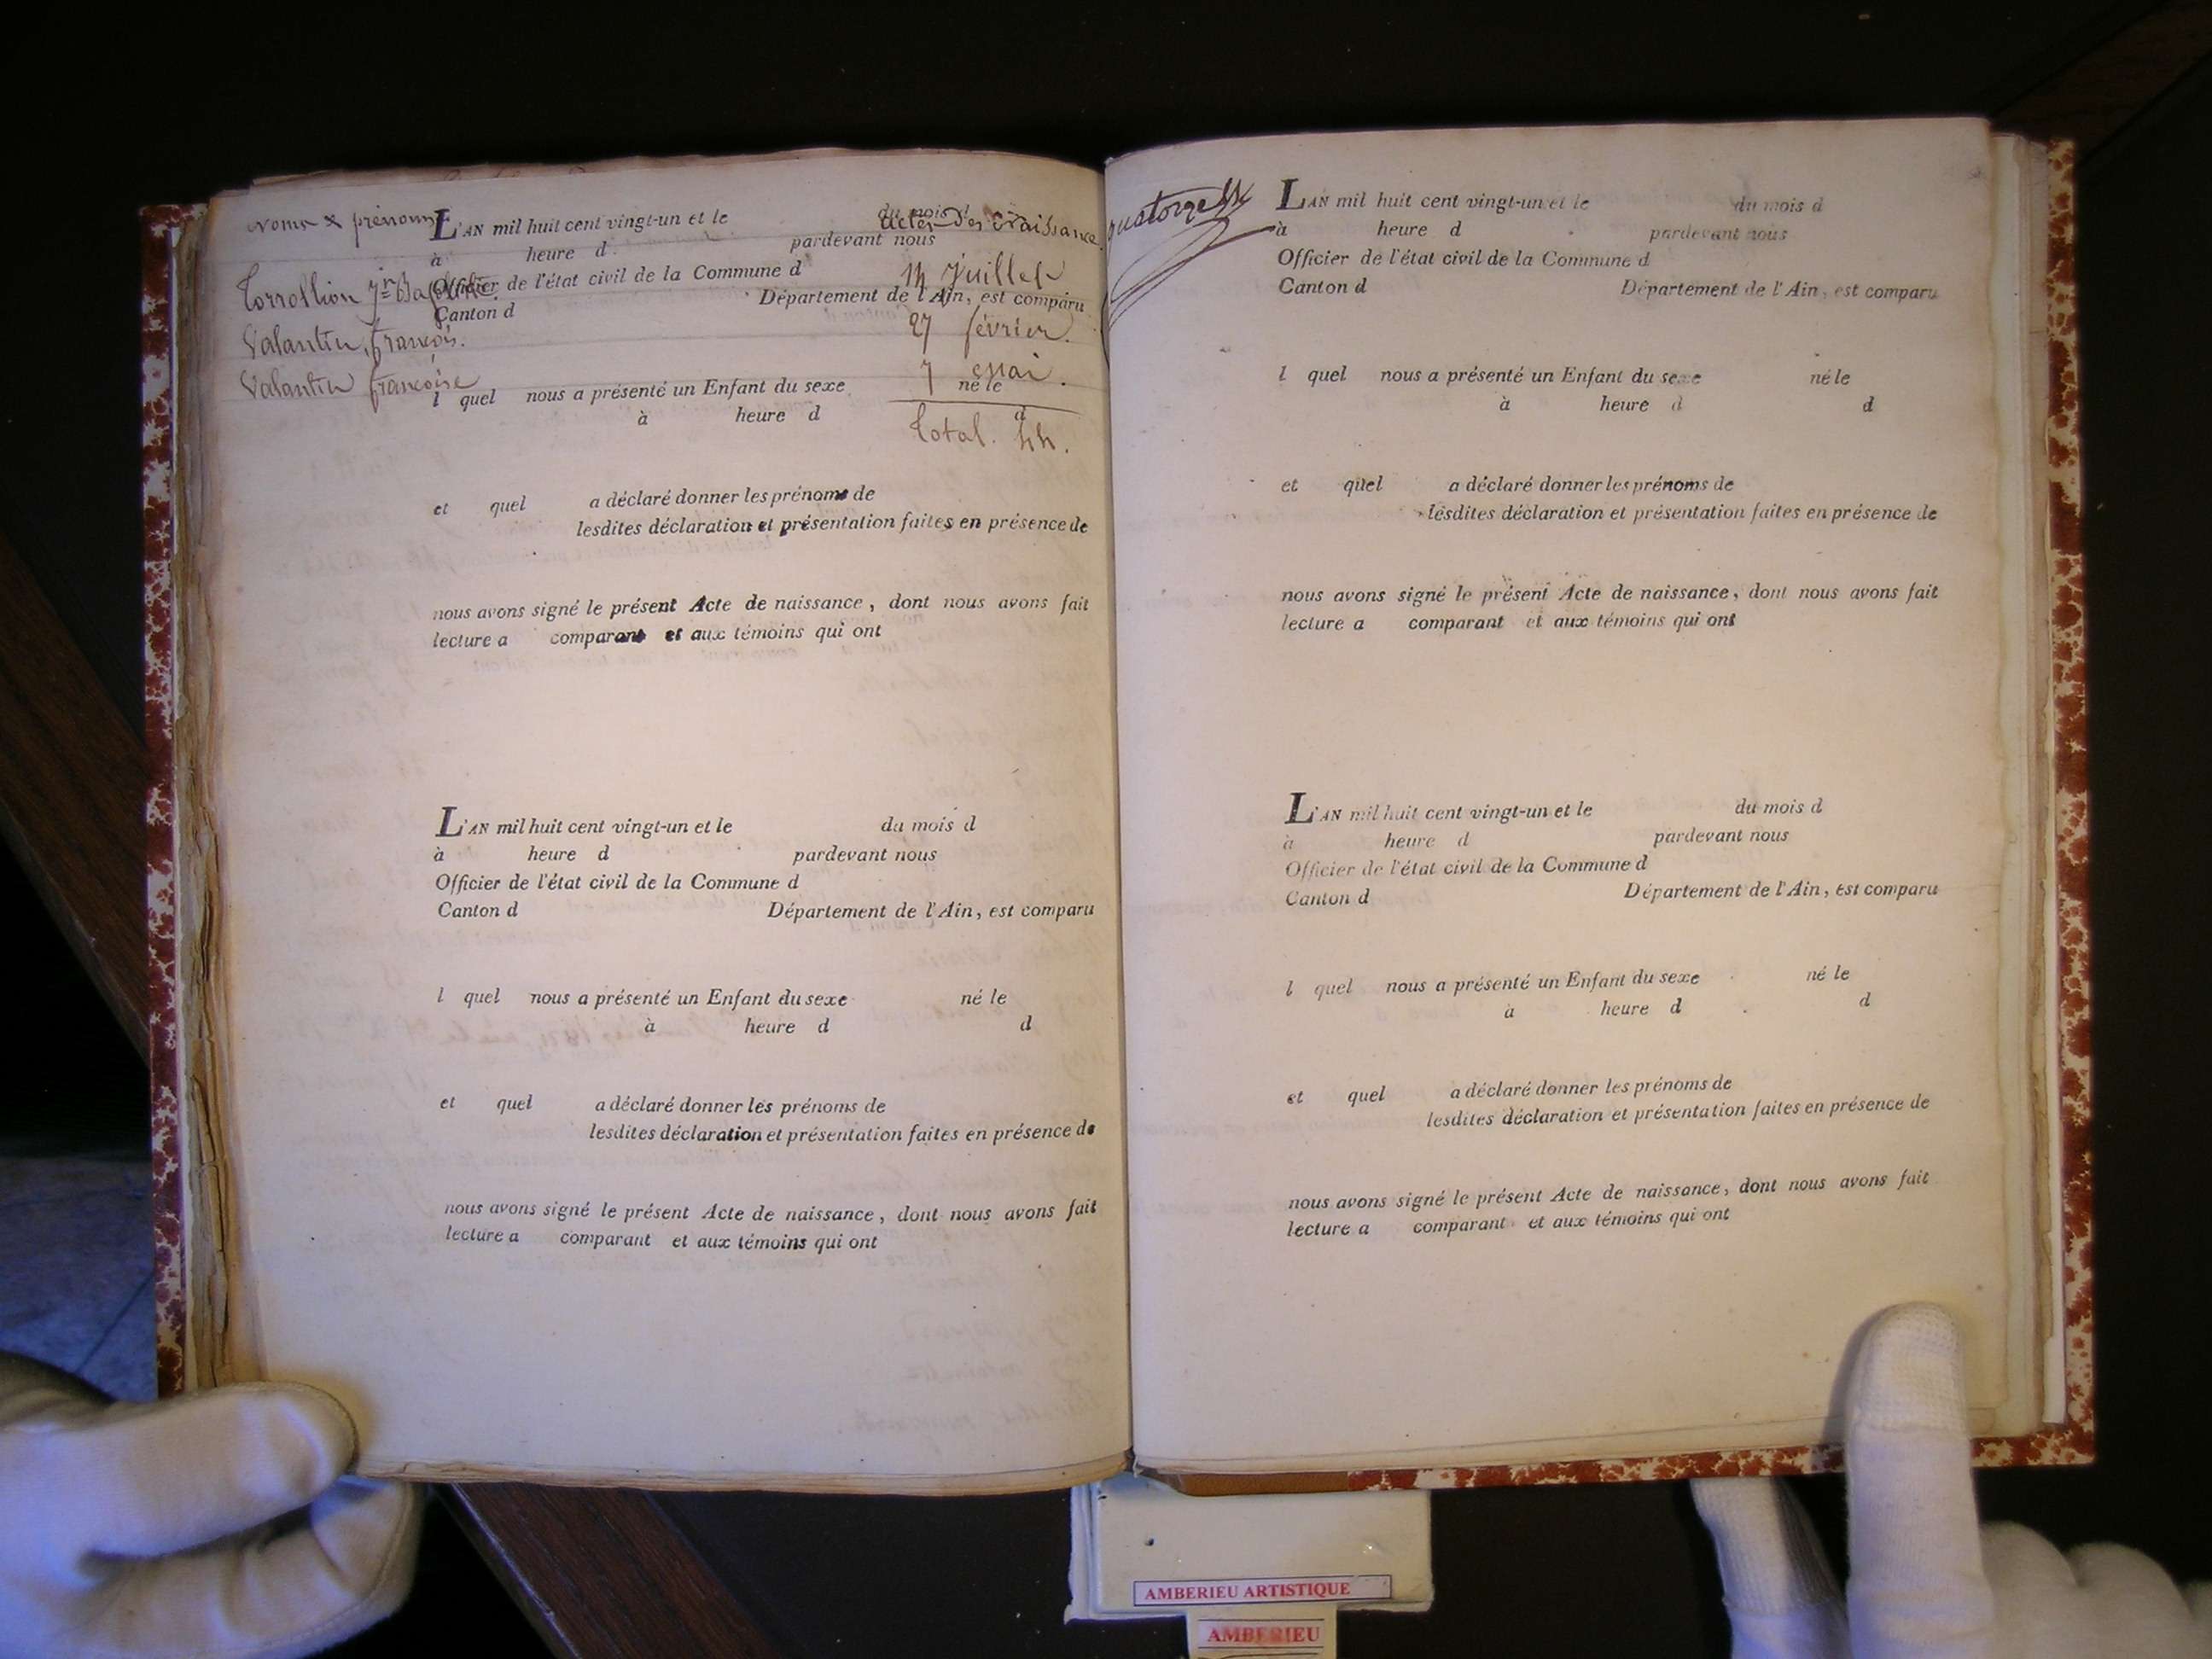 noms & prénoms
Actes des Naissance.
L'AN mil huit cent vingt-un et le du mois d
à heure d pardevant nous
Officier de l'état civil de la Commune d
14 Juillet
Canton d Département de l'Ain, est comparu
Valantin, françois. 27 février.
Valantin françoise 7 Mai.
l quel nous a présenté un Enfant du sexe né le
à heure d d
Total. 44.
et quel a déclaré donner les prénoms de
lesdites déclaration et présentation faites en présence de
nous avons signé le présent Acte de naissance, dont nous avons fait
lecture a comparant et aux témoins qui ont
L'AN mil huit cent vingt-un et le du mois d
à heure d pardevant nous
Officier de l'état civil de la Commune d
Canton d Département de l'Ain, est comparu
l quel nous a présenté un Enfant du sexe né le
à heure d d
et quel a déclaré donner les prénoms de
lesdites déclaration et présentation faites en présence de
nous avons signé le présent Acte de naissance, dont nous avons fait
lecture a comparant et aux témoins qui ont
quatorze
L'AN mil huit cent vingt-un et le du mois d
à heure d pardevant nous
Officier de l'état civil de la Commune d
Canton d Département de l'Ain, est comparu
l quel nous a présenté un Enfant du sexe né le
à heure d d
et quel a déclaré donner les prénoms de
lesdites déclaration et présentation faites en présence de
nous avons signé le présent Acte de naissance, dont nous avons fait
lecture a comparant et aux témoins qui ont
L'AN mil huit cent vingt-un et le du mois d
à heure d pardevant nous
Officier de l'état civil de la Commune d
Canton d Département de l'Ain, est comparu
l quel nous a présenté un Enfant du sexe né le
à heure d d
et quel a déclaré donner les prénoms de
lesdites déclaration et présentation faites en présence de
nous avons signé le présent Acte de naissance, dont nous avons fait
lecture a comparant et aux témoins qui ont
AMBERIEU ARTISTIQUE
AMBERIEU